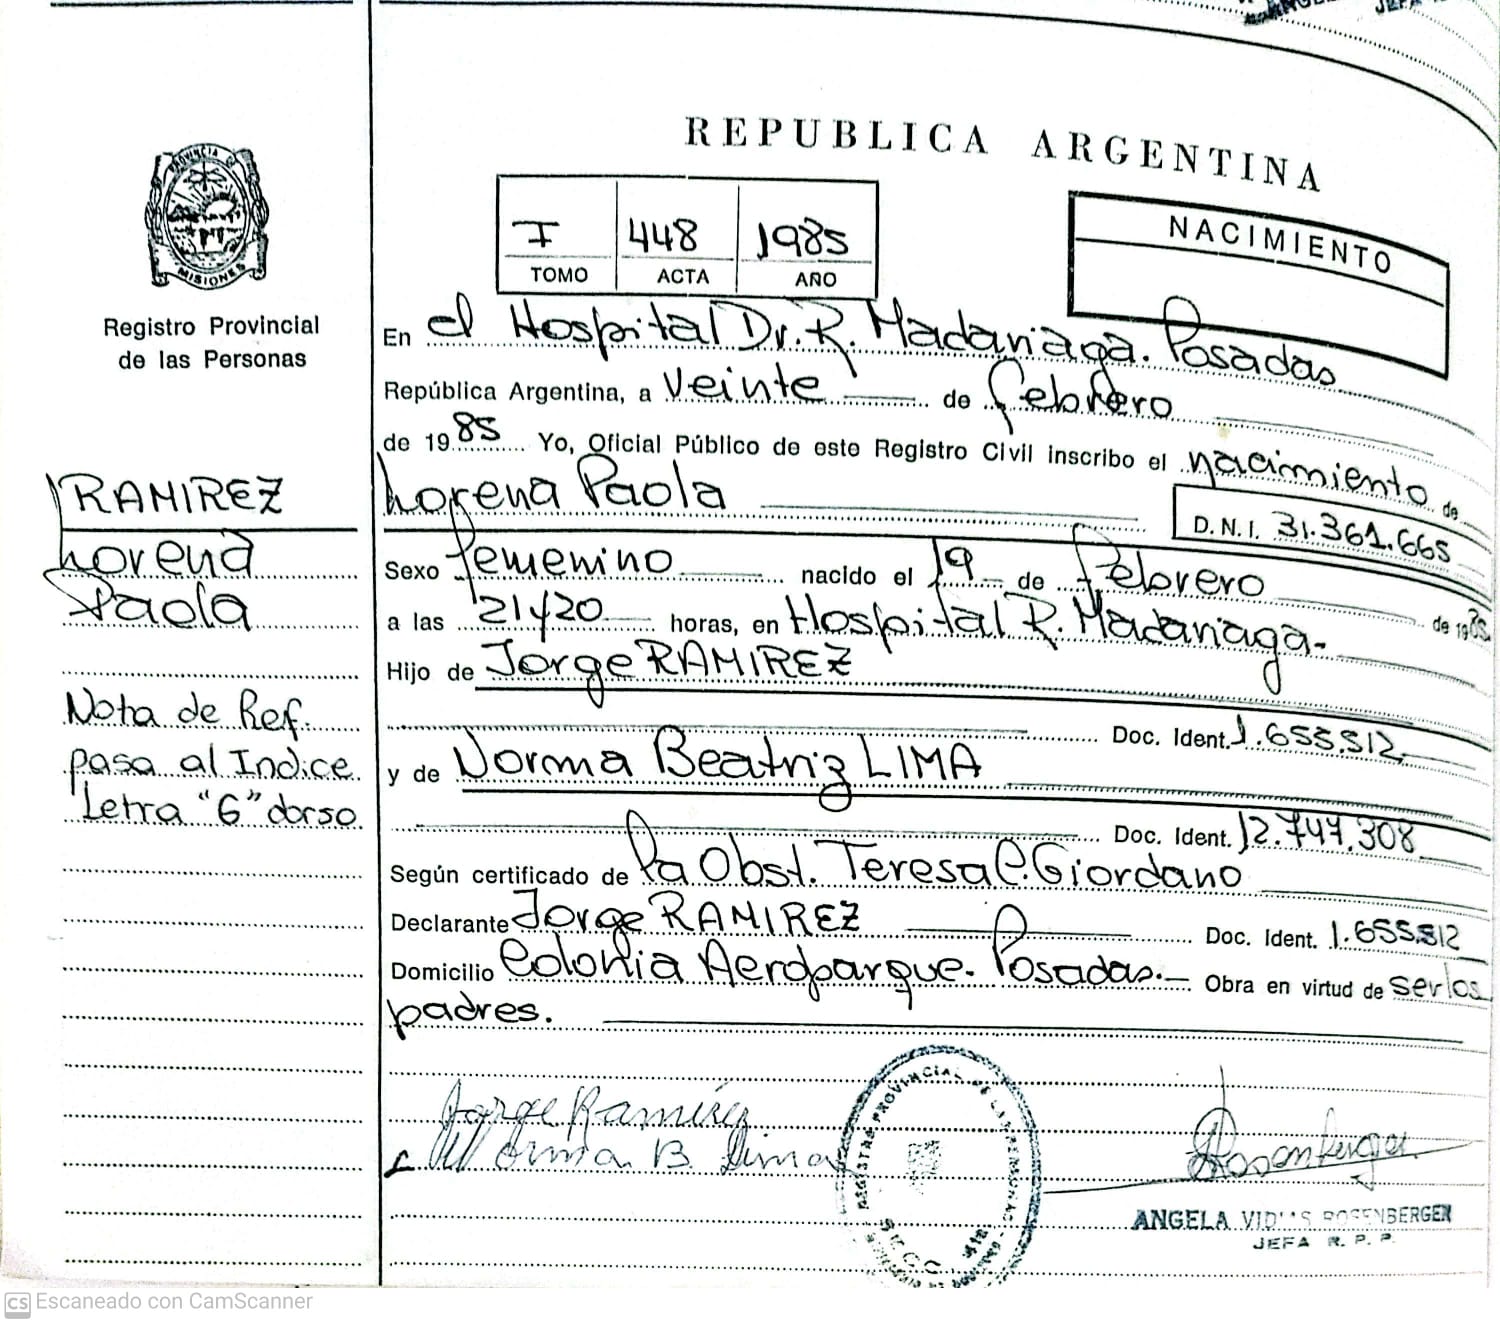 REPUBLICA ARGENTINA
PROVINCIA DE
MISIONES
Registro Provincial
de las Personas
I 448 1985
TOMO ACTA AÑO
NACIMIENTO
En el Hospital Dr. R. Madariaga. Posadas
República Argentina, a veinte de febrero
de 1985 Yo, Oficial Público de este Registro Civil inscribo el nacimiento de
Lorena Paola
D.N.I. 31.361.665
Sexo femenino nacido el 19 de febrero de 1985
a las 21y20 horas, en Hospital R. Madariaga-
Hijo de Jorge RAMIREZ
Doc. Ident. 1.655.512
y de Norma Beatriz LIMA
Doc. Ident. 12.747.308
Según certificado de la Obst. Teresa C. Giordano
Declarante Jorge RAMIREZ Doc. Ident. 1.655.512
Domicilio Colonia Aeroparque. Posadas.- Obra en virtud de ser los
padres.
RAMIREZ
Lorena
Paola
Nota de Ref.
pasa al Indice
Letra "G" dorso
Jorge Ramírez
Norma B. Lima
REGISTRO PROVINCIAL DE LAS PERSONAS
Rosenberger
ANGELA ROSENBERGER
JEFA R. P. P.
CS Escaneado con CamScanner